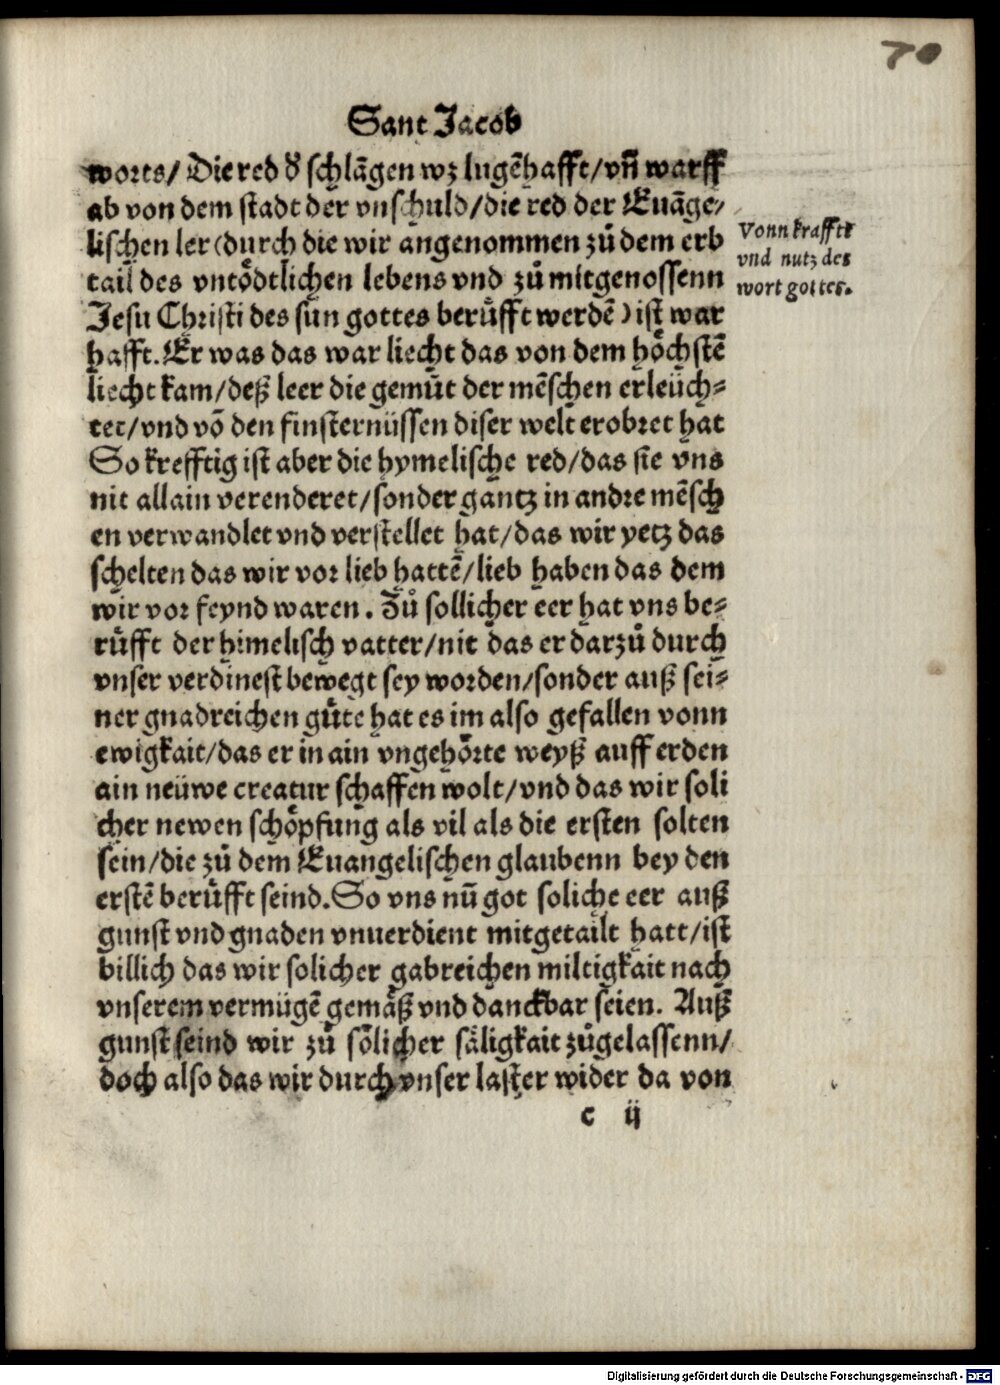 70
Sant Jacob
worts/ Die red d̕ schlãgen wz lugẽhafft/vñ warff
ab von dem stadt der vnschuld/die red der Euãge/
lischen ler (durch die wir angenommen zů dem erb
tail des vntödtlichen lebens vnd zů mitgenossenn
Jesu Christi des sun gottes berůfft werdẽ) ist war
hafft. Er was das war liecht das von dem höchstẽ
liecht kam/deß leer die gemüt der mẽschen erleüch⸗
tet/vnd võ den finsternüssen diser welt erobret hat
So krefftig ist aber die hymelische red/das sie vns
nit allain verenderet/sonder gantz in andre mẽsch
en verwandlet vnd verstellet hat/das wir yetz das
schelten das wir vor lieb hattẽ/lieb haben das dem
wir vor feynd waren. Zů sollicher eer hat vns be⸗
růfft der himelisch vatter/nit das er darzů durch
vnser verdinest bewegt sey worden/sonder auß sei⸗
ner gnadreichen güte hat es im also gefallen vonn
ewigkait/das er in ain vngehörte weyß auff erden
ain neüwe creatur schaffen wolt/vnd das wir soli
cher newen schöpfung als vil als die ersten solten
sein/die zů dem Euangelischen glaubenn bey den
erstẽ berůfft seind. So vns nũ got soliche eer auß
gunst vnd gnaden vnuerdient mitgetailt hatt/ist
billich das wir solicher gabreichen miltigkait nach
vnserem vermügẽ gemäß vnd danckbar seien. Auß
gunst seind wir zů sölicher säligkait zůgelassenn/
doch also das wir durch vnser laster wider da von
c ij
Vonn krafft
vnd nutz des
wort gottes.
Digitalisierung gefördert durch die Deutsche Forschungsgemeinschaft - DFG